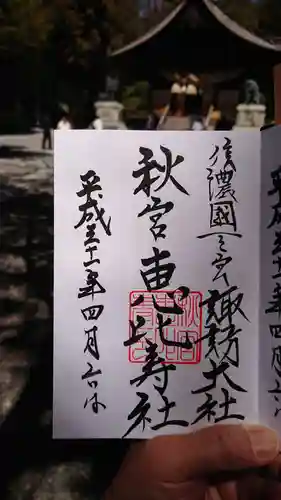 信濃國一之宮
諏訪大社
秋宮恵比寿社
平成三十一年四月六日
平成三十一年四月